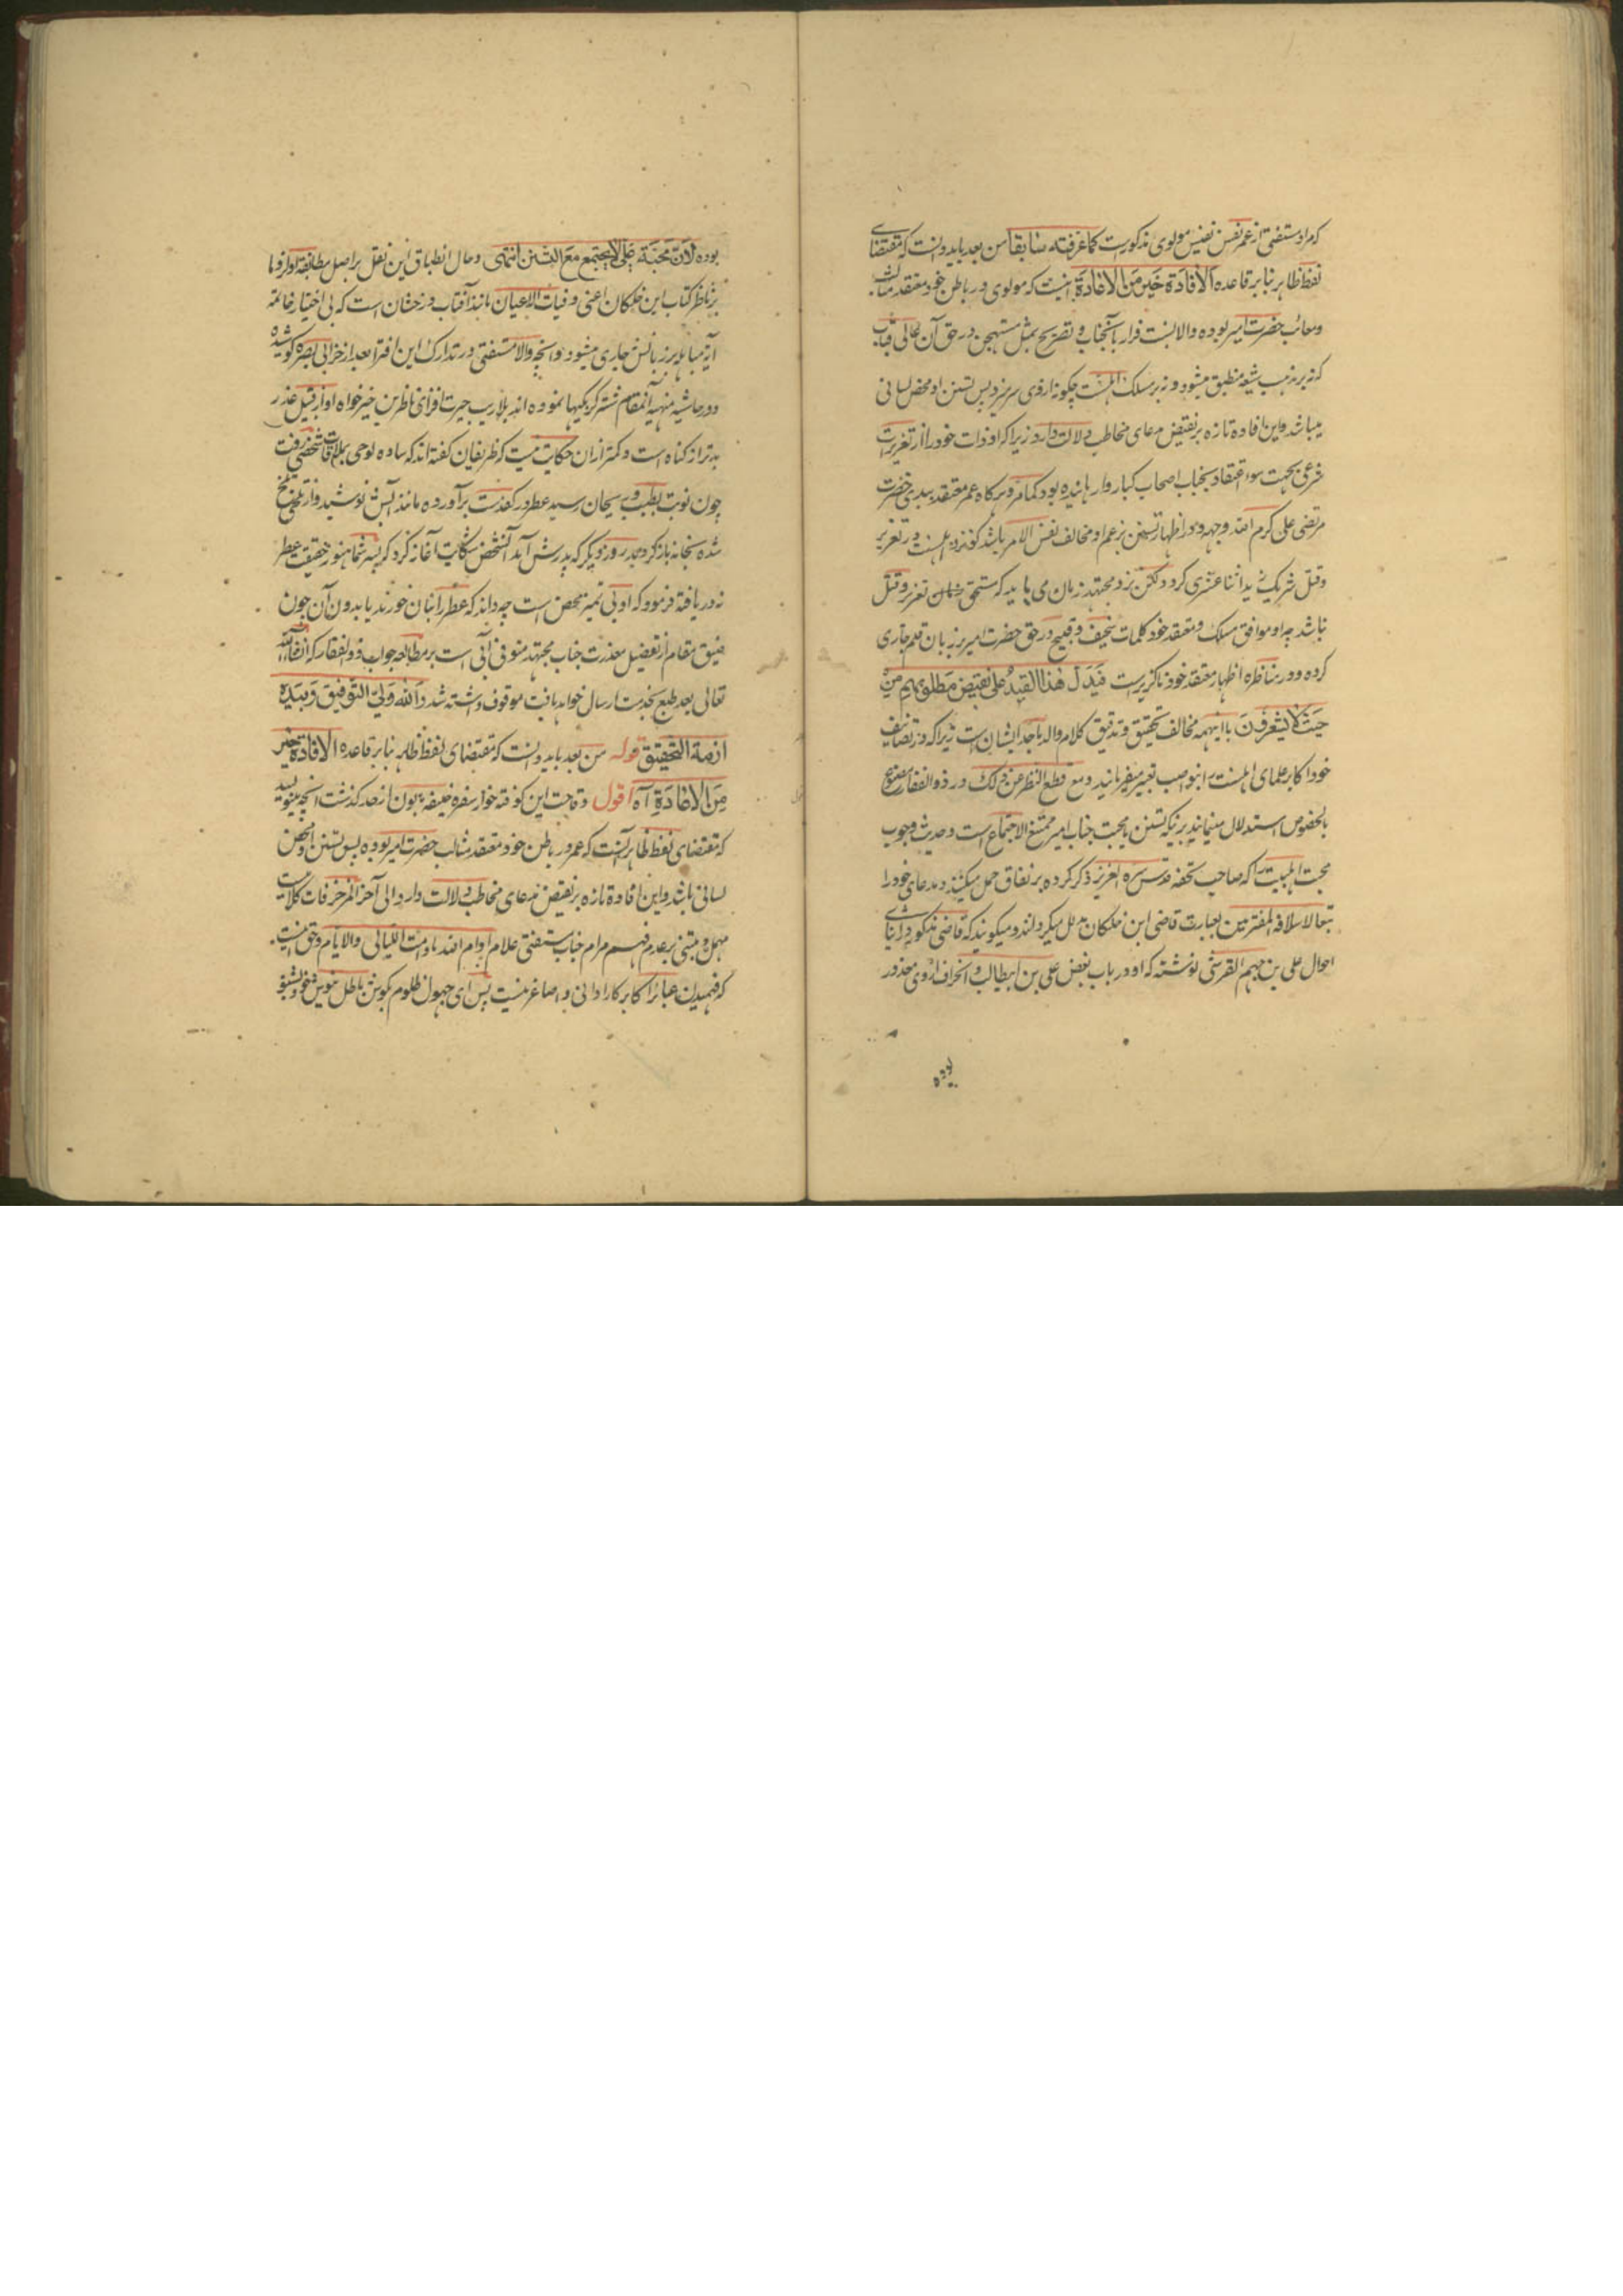 که مراد مستفتی از عمر نفس نفیس مولوی مذکورست کما عرفته سابقا من بعد باید دانست که مقتضای
لفظ ظاهر بنا بر قاعده الافادة خیر من الاعادة اینست که مولوی در باطن خود معتقد مثالب
و معائب حضرت امیر بوده و الا نسبت فرار بآنجناب و تصریح بمثل مستهجن در حق آن عالی قباب
که نه بر مذهب شیعه منطبق میشود و نه بر مسلک اهلسنت چگونه از وی سر میزد پس تسنن او محض لسانی
میباشد و این افاده تازه بر نقیض مدعای مخاطب دلالت دارد زیرا که او ذات خود را از تعزیرات
شرعی بجهت سوء اعتقاد بجناب اصحاب کبار وا رهانیده بود کما مر و هرگاه عمر معتقد ببدی حضرت
مرتضی علی کرم الله وجهه و در اظهار تسنن بزعم او مخالف نفس الامر باشد کو نزد اهلسنت در تعزیر
و قتل شریک یزید اثنا عشری گردد لکن نزد مجتهد زمان می باید که مستحق تعزیر و قتل
نباشد چه او موافق مسلک و معتقد خود کلمات سخیف و قبیح در حق حضرت امیر بر زبان قلم جاری
کرده و در مناظره اظهار معتقد خود ناگزیرست فیدل هذا القید علی نقیض مطلوبهم من
حیث لا یشعرون با اینهمه مخالف تحقیق و تدقیق کلام والد ماجد ایشان است زیرا که در تصانیف
خود اکابر علمای اهلسنت را بنواصب تعبیر میفرمایند و مع قطع النظر عن ذلک در ذوالفقار
بالخصوص استدلال مینمایند برینکه تسنن با محبت جناب امیر ممتنع الاجتماع است و حدیث وجوب
محبت اهلبیت را که صاحب تحفه قدس سره العزیز ذکر کرده بر نفاق حمل میکنند و مدعای خود را
تبعا لاسلافه المفترین بعبارت قاضی ابن خلکان مدلل میگردانند و میگویند که قاضی مذکور در اثنای
احوال علی بن جهم القرشی نوشته که او در باب بغض علی بن ابیطالب و انحراف از وی معذور
بوده
بوده لان محبة علی لا یجتمع مع التسنن انتهی و حال انطباق این نقل بر اصل مطابقة
بر ناظر کتاب ابن خلکان اعنی وفیات الاعیان مانند آفتاب درخشان است که بی اختیار خاتمه
آیه مباهله بر زبانش جاری میشود و آنچه والا مستفتی در تدارک این افترا بعد از خرابی بصره کوشیده
و در حاشیه منهیه آنمقام شترگربگیها نموده اند بلاریب حیرت افزای ناظرین خیرخواه او از قبیل عذر
بدتر از گناه است و کمتر ازان حکایت نیست که ظریفان گفته اند که ساده لوحی بملاقات شخصی رفت
چون نوبت بطیب و ریحان رسید عطر در کفدست برآورده مانند آبش نوشید و از تلخی تلخ
شده بخانه باز گردید روز دیگر که پدرش آمد آنشخص شکایت آغاز کرد که پسر شما هنوز حقیقت عطر
نه دریافته فرمود که او بی تمیز محض است چه داند که عطر را بنان خورند یا بدون آن چون
ضیق مقام از تفصیل معذرت جناب مجتهد منوفی آبی است بر مطالعه جواب ذوالفقار که انشاءالله
تعالی بعد طبع بخدمت ارسال خواهد یافت موقوف داشته شد والله ولی التوفیق وبیده
ازمة التحقیق قوله من بعد باید دانست که مقتضای لفظ ظاهر بنا بر قاعده الافادة خیر
من الاعادة آه اقول وقاحت این کوفته خوار سفره خلیفه ... از حد گذشت آنچه مینویسد
که مقتضای لفظ ظاهر آنست که عمر در باطن خود معتقد مثالب حضرت امیر بوده پس تسنن او محض
لسانی باشد و این افاده تازه بر نقیض مدعای مخاطب دلالت دارد الی آخر المزخرفات کلامیست
مهمل و مبتنی بر عدم فهم مرام جناب مستفتی علام ادام الله ما دامت اللیالی والایام و حق اینست
که فهمیدن عبائر اکابر کار ادانی و اصاغر نیست پس ای جهول ظلوم بگوش باطل نیوش خود بشنو